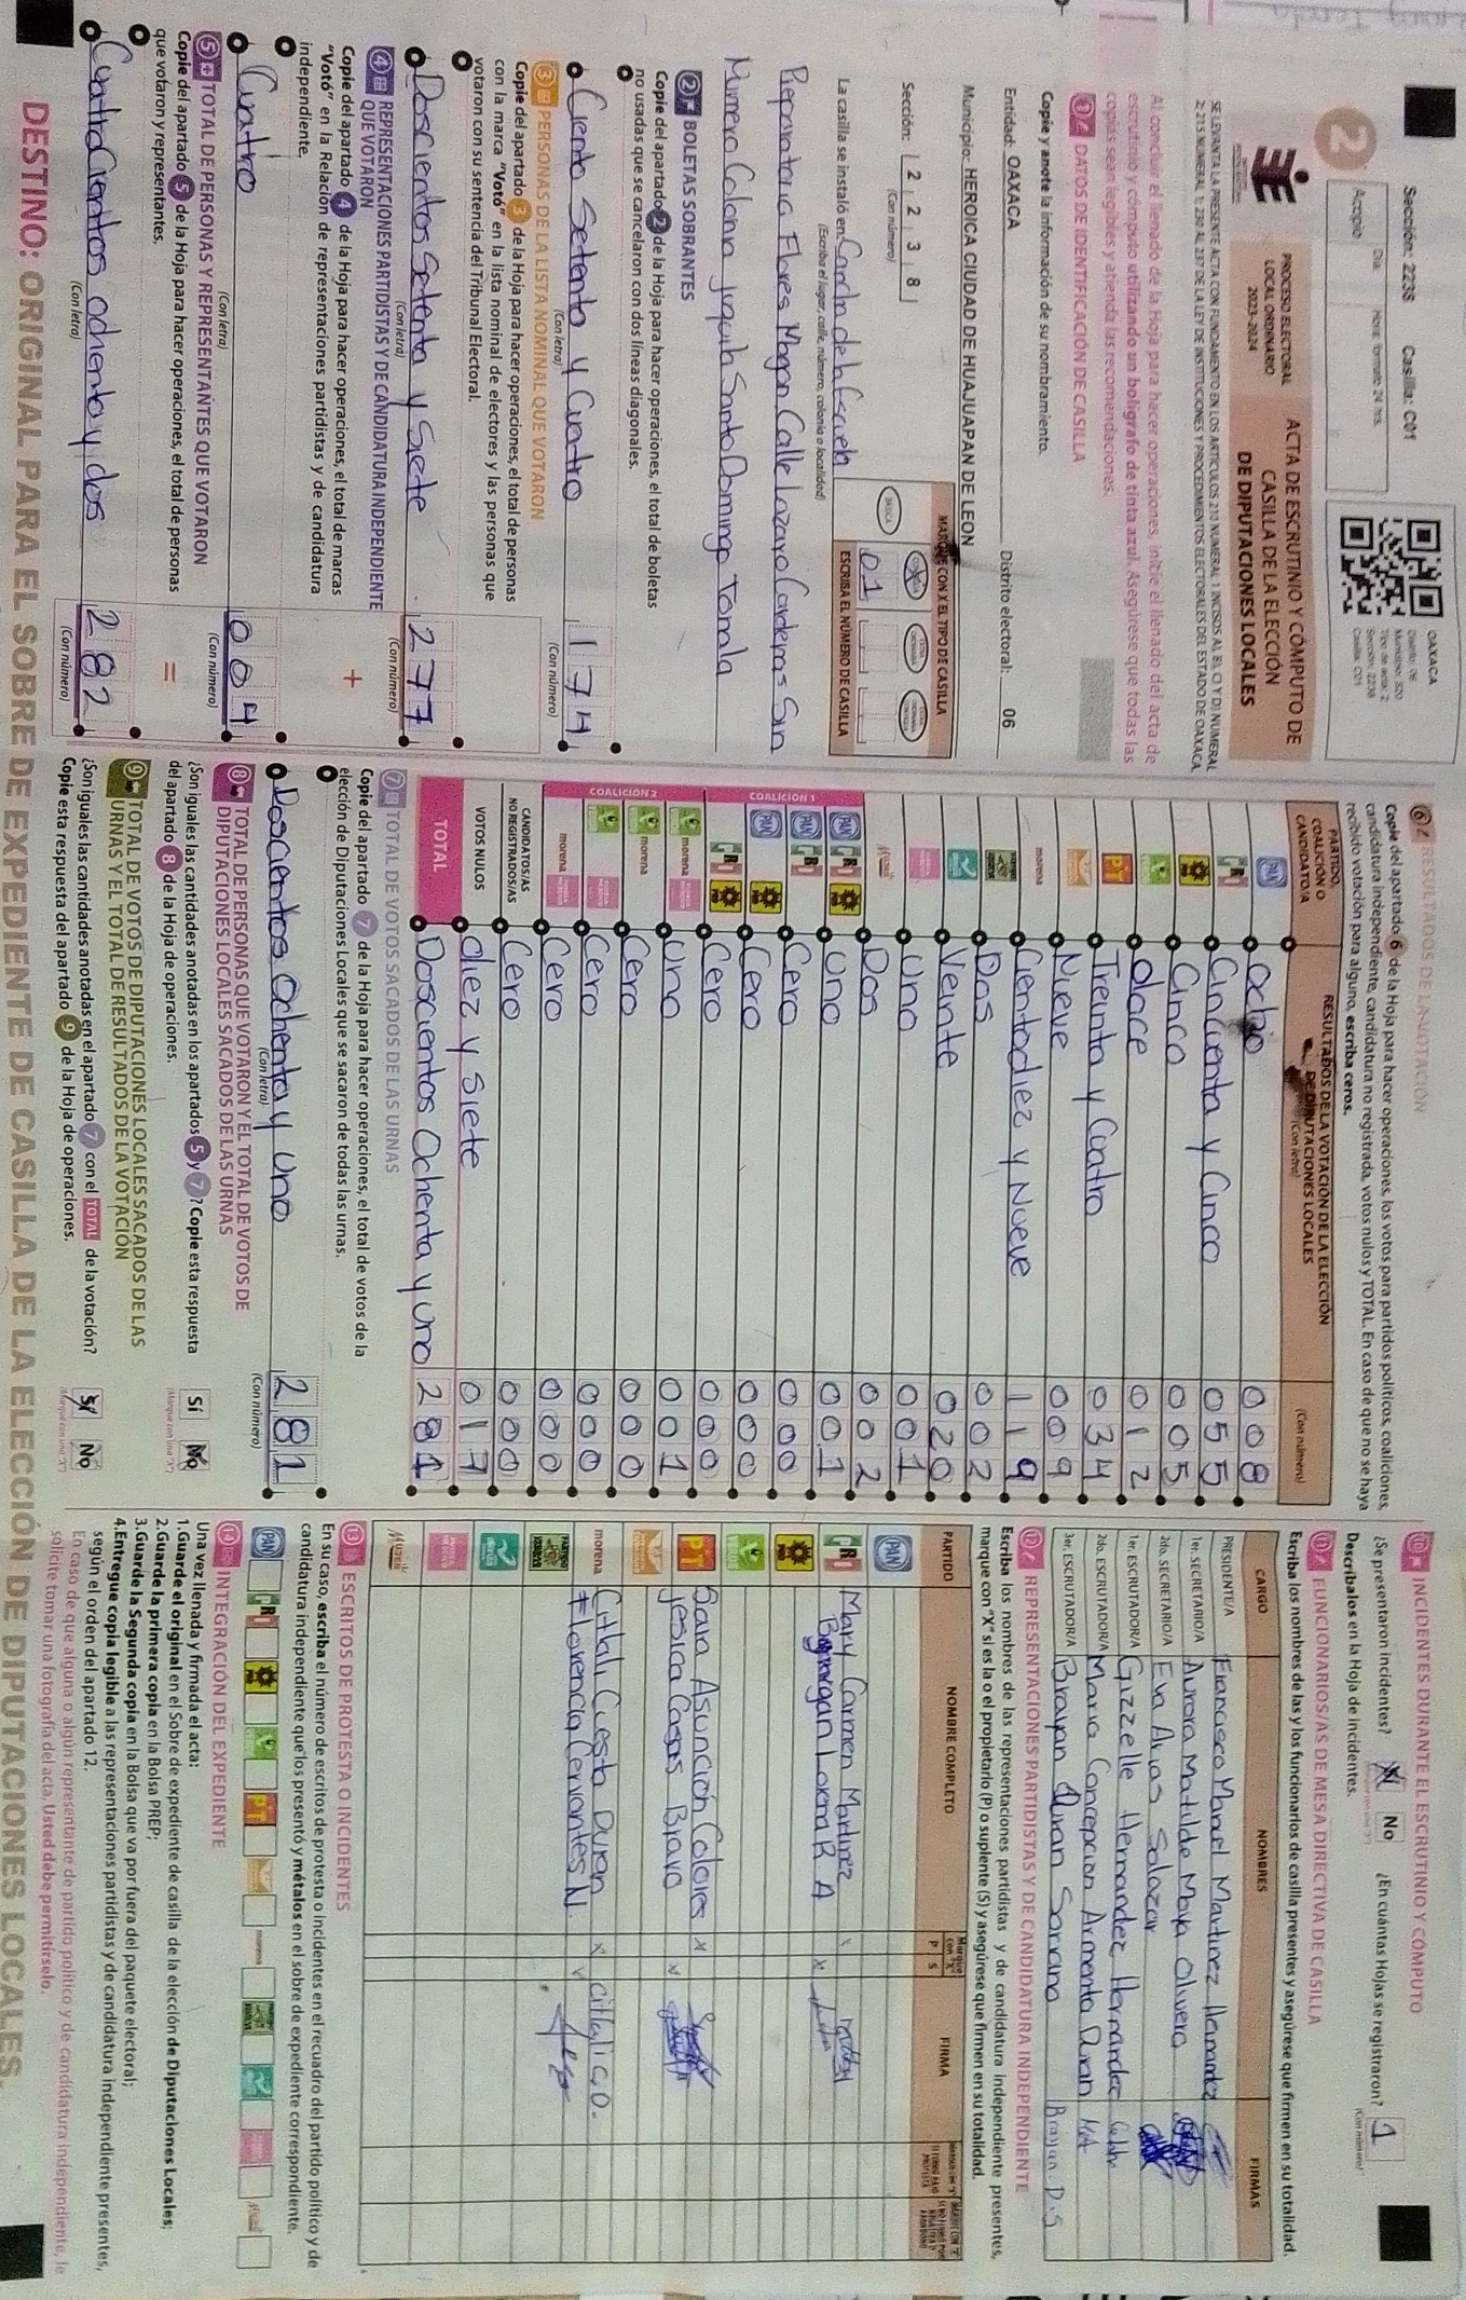 Sección: 2238 Casilla: C01
Día Hora: formato 24 hrs.
Acopio
2
OAXACA
Distrito: 06
Municipio: 520
Tipo de acta: 2
Sección: 2238
Casilla: C01
PROCESO ELECTORAL
LOCAL ORDINARIO
2023-2024
ACTA DE ESCRUTINIO Y CÓMPUTO DE
CASILLA DE LA ELECCIÓN
DE DIPUTACIONES LOCALES
Al concluir el llenado de la Hoja para hacer operaciones, inicie el llenado del acta de
escrutinio y cómputo utilizando un bolígrafo de tinta azul. Asegúrese que todas las
copias sean legibles y atienda las recomendaciones.
1 DATOS DE IDENTIFICACIÓN DE CASILLA
Copie y anote la información de su nombramiento.
Entidad: OAXACA Distrito electoral: 06
Municipio: HEROICA CIUDAD DE HUAJUAPAN DE LEON
Sección: 2 2 3 8
(Con número)
MARQUE CON X EL TIPO DE CASILLA
BÁSICA
01
ESCRIBA EL NÚMERO DE CASILLA
La casilla se instaló en: Cancha de la Escuela
(Escriba el lugar, calle, número, colonia o localidad)
Preparatoria Flores Magon Calle Lazaro Cardenas Sin
Numero Colonia Juquila Santo Domingo Tonala
2 BOLETAS SOBRANTES
Copie del apartado 2 de la Hoja para hacer operaciones, el total de boletas
no usadas que se cancelaron con dos líneas diagonales.
Ciento Setenta y Cuatro 174
(Con letra) (Con número)
3 PERSONAS DE LA LISTA NOMINAL QUE VOTARON
Copie del apartado 3 de la Hoja para hacer operaciones, el total de personas
con la marca "Votó" en la lista nominal de electores y las personas que
votaron con su sentencia del Tribunal Electoral.
Doscientos Setenta y Siete 277
(Con letra) (Con número)
4 REPRESENTACIONES PARTIDISTAS Y DE CANDIDATURA INDEPENDIENTE
QUE VOTARON
+
Copie del apartado 4 de la Hoja para hacer operaciones, el total de marcas
"Votó" en la Relación de representaciones partidistas y de candidatura
independiente.
Cuatro 004
(Con letra) (Con número)
5 TOTAL DE PERSONAS Y REPRESENTANTES QUE VOTARON
=
Copie del apartado 5 de la Hoja para hacer operaciones, el total de personas
que votaron y representantes.
Cuatro Cientos ochenta y dos 282
(Con letra) (Con número)
6 RESULTADOS DE LA VOTACIÓN
Copie del apartado 6 de la Hoja para hacer operaciones, los votos para partidos políticos, coaliciones,
candidatura independiente, candidatura no registrada, votos nulos y TOTAL. En caso de que no se haya
recibido votación para alguno, escriba ceros.
PARTIDO,
COALICIÓN O
CANDIDATO/A
RESULTADOS DE LA VOTACIÓN DE LA ELECCIÓN
DE DIPUTACIONES LOCALES
(Con letra)
(Con número)
PAN Ocho 008
PRI Cincuenta y Cinco 055
PRD Cinco 005
doce 012
PT Treinta y Cuatro 034
Nueve 009
morena Cientodiez y Nueve 119
Dos 002
Veinte 020
Uno 001
Dos 002
COALICIÓN 1
PAN PRI PRD Uno 001
PAN PRI Cero 000
PAN PRD Cero 000
PRI PRD Cero 000
COALICIÓN 2
morena Uno 001
morena Cero 000
Cero 000
morena Cero 000
CANDIDATOS/AS
NO REGISTRADOS/AS Cero 000
VOTOS NULOS diez y siete 017
TOTAL Doscientos Ochenta y Uno 281
7 TOTAL DE VOTOS SACADOS DE LAS URNAS
Copie del apartado 7 de la Hoja para hacer operaciones, el total de votos de la
elección de Diputaciones Locales que se sacaron de todas las urnas.
Doscientos Ochenta y Uno 281
(Con letra) (Con número)
8 TOTAL DE PERSONAS QUE VOTARON Y EL TOTAL DE VOTOS DE
DIPUTACIONES LOCALES SACADOS DE LAS URNAS
¿Son iguales las cantidades anotadas en los apartados 5 y 7? Copie esta respuesta
del apartado 8 de la Hoja de operaciones.
Sí No
9 TOTAL DE VOTOS DE DIPUTACIONES LOCALES SACADOS DE LAS
URNAS Y EL TOTAL DE RESULTADOS DE LA VOTACIÓN
¿Son iguales las cantidades anotadas en el apartado 7 con el TOTAL de la votación?
Copie esta respuesta del apartado 9 de la Hoja de operaciones.
Sí No
10 INCIDENTES DURANTE EL ESCRUTINIO Y CÓMPUTO
¿Se presentaron incidentes? Sí No ¿En cuántas Hojas se registraron? 1
Descríbalos en la Hoja de incidentes.
11 FUNCIONARIOS/AS DE MESA DIRECTIVA DE CASILLA
Escriba los nombres de las y los funcionarios de casilla presentes y asegúrese que firmen en su totalidad.
CARGO NOMBRES FIRMAS
PRESIDENTE/A Francisco Manuel Martinez Hernandez
1er. SECRETARIO/A Aurora Matilde Moya Olivera
2do. SECRETARIO/A Eva Arias Salazar
1er. ESCRUTADOR/A Gizzelle Hernandez Hernandez
2do. ESCRUTADOR/A Maria Concepcion Armenta Duran
3er. ESCRUTADOR/A Brayan Duran Soriano Brayan.D.S
12 REPRESENTACIONES PARTIDISTAS Y DE CANDIDATURA INDEPENDIENTE
Escriba los nombres de las representaciones partidistas y de candidatura independiente presentes,
marque con "X" si es la o el propietario (P) o suplente (S) y asegúrese que firmen en su totalidad.
PARTIDO NOMBRE COMPLETO P S FIRMA
PAN
PRI Mary Carmen Martinez
PRD
PT Sara Asunción Colores x
Jesica Casas Bravo x
morena Citlali Cuesta Duran x citlali C.D.
Florencia Cervantes N.
13 ESCRITOS DE PROTESTA O INCIDENTES
En su caso, escriba el número de escritos de protesta o incidentes en el recuadro del partido político y de
candidatura independiente que los presentó y métalos en el sobre de expediente correspondiente.
PAN PRI PRD PT
14 INTEGRACIÓN DEL EXPEDIENTE
Una vez llenada y firmada el acta:
1.Guarde el original en el Sobre de expediente de casilla de la elección de Diputaciones Locales;
2.Guarde la primera copia en la Bolsa PREP;
3.Guarde la Segunda copia en la Bolsa que va por fuera del paquete electoral;
4.Entregue copia legible a las representaciones partidistas y de candidatura independiente presentes,
según el orden del apartado 12.
En caso de que alguna o algún representante de partido político y de candidatura independiente, le
solicite tomar una fotografía del acta, Usted debe permitírselo.
DESTINO: ORIGINAL PARA EL SOBRE DE EXPEDIENTE DE CASILLA DE LA ELECCIÓN DE DIPUTACIONES LOCALES.